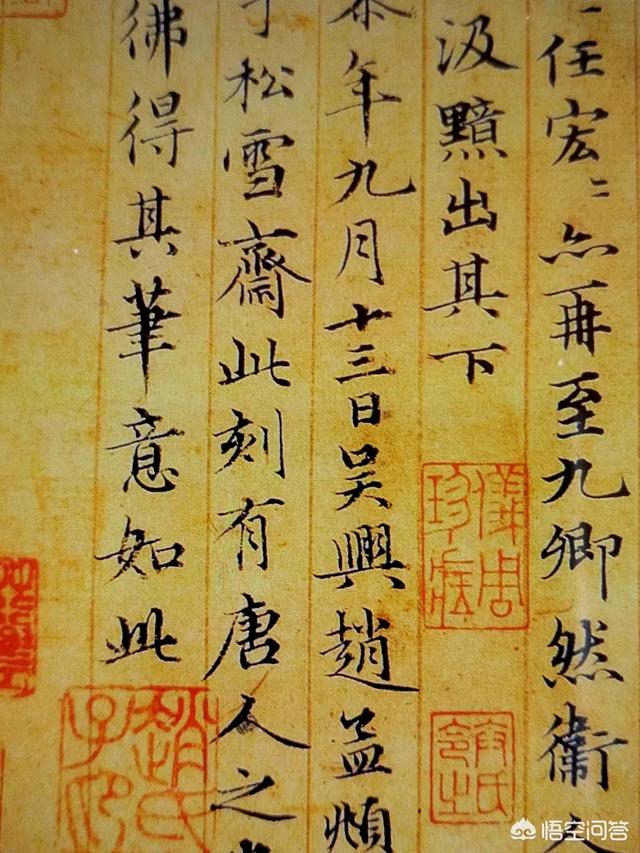 任宏〻亦再至九卿然衛人
汲黯出其下
年九月十三日吳興趙孟頫
于松雪齋此刻有唐人之
彿得其筆意如此
儀周珍藏
趙氏子昂
悟空问答